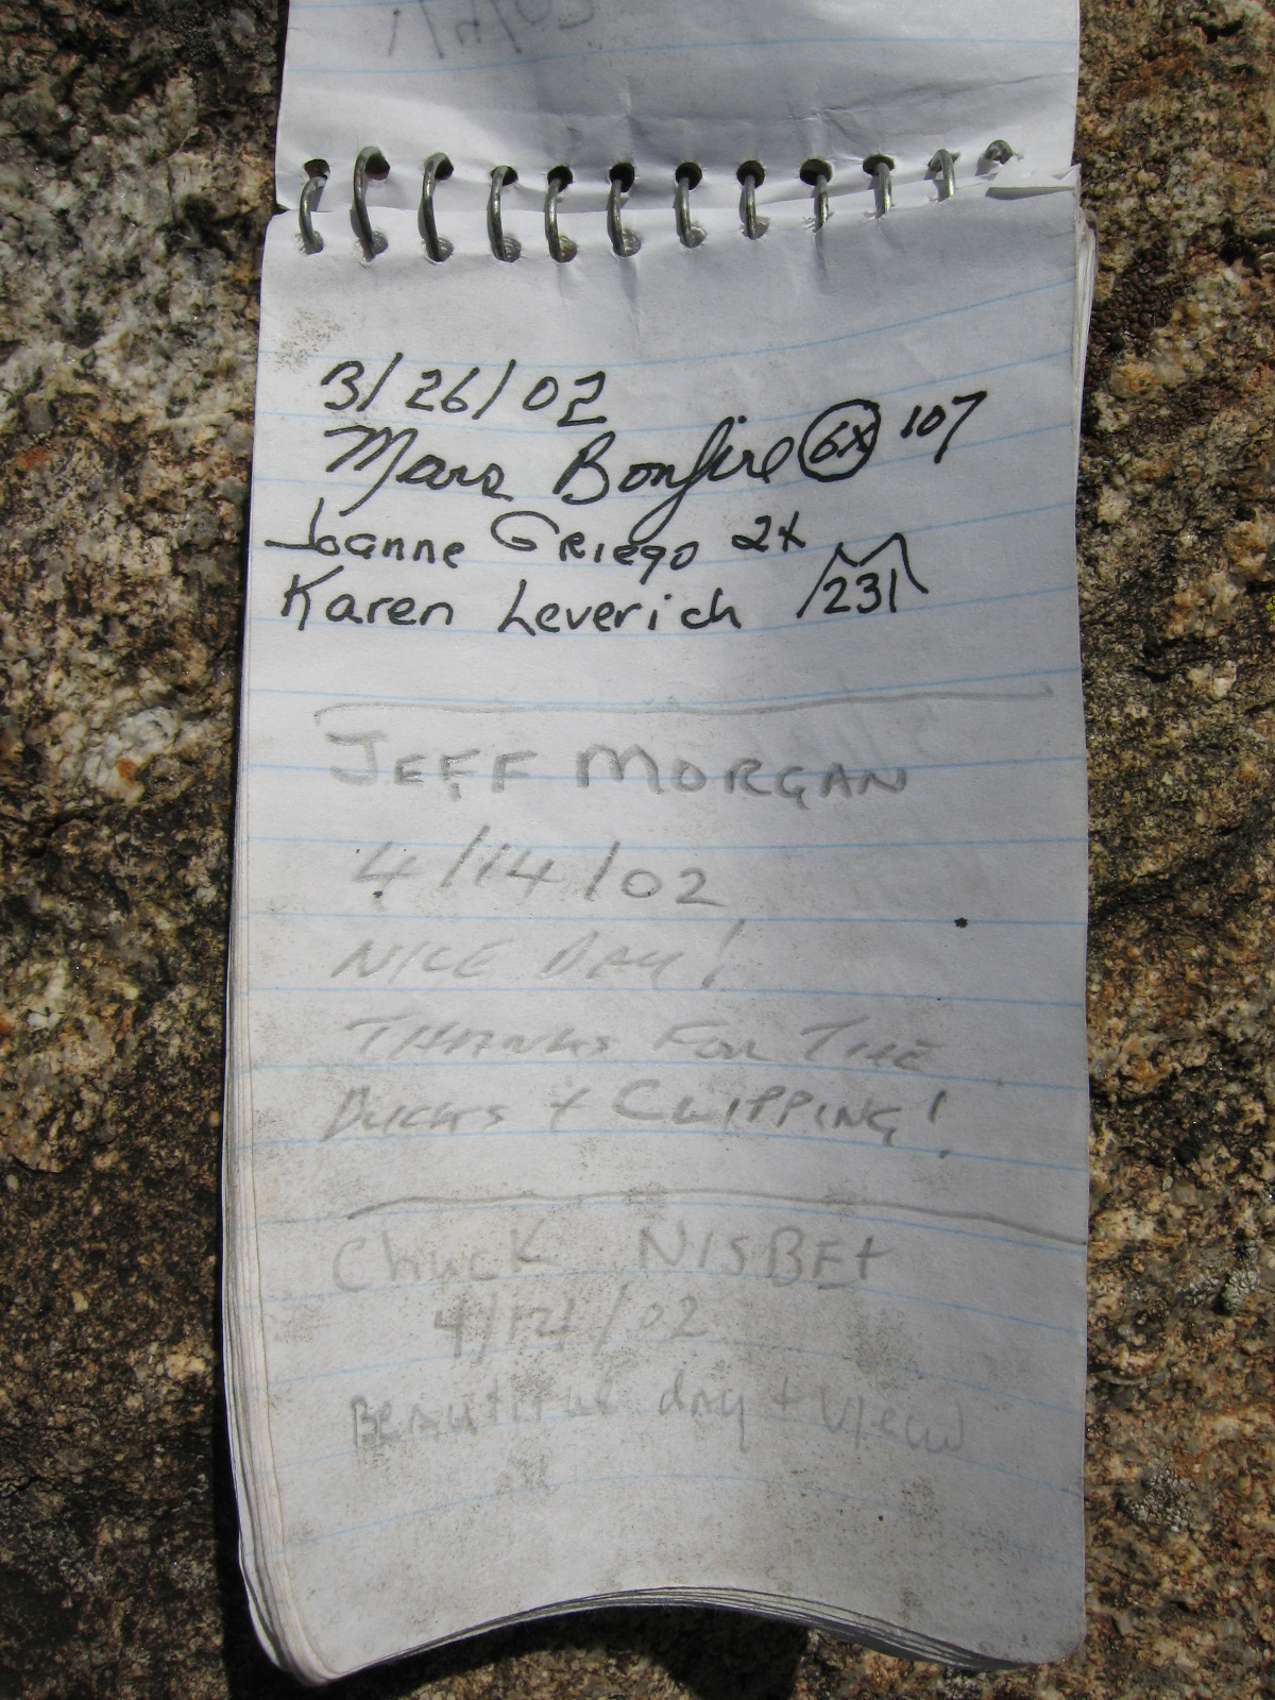 3/26/02
Mars Bonfire 6X 107
Joanne Griego 2x
Karen Leverich 231
JEFF MORGAN
4/14/02
NICE DAY!
THANKS FOR THE
DUCKS + CLIPPING!
Chuck NISBEt
4/14/02
Beautiful day + View